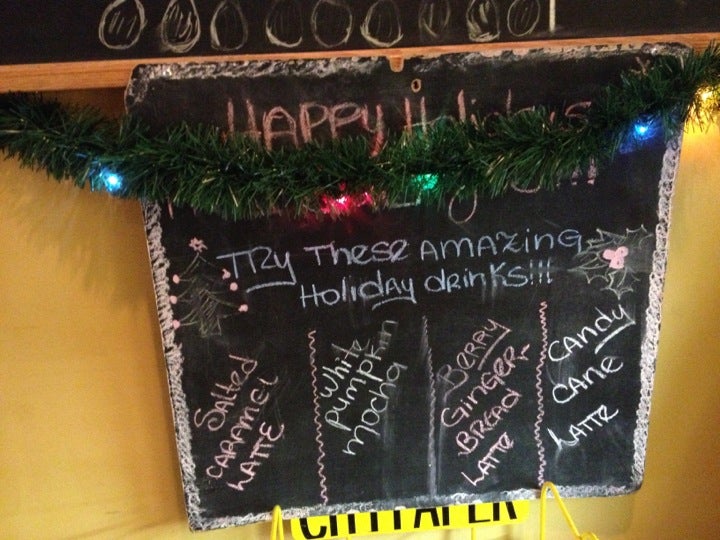 HAPPY Holidays
TRy These AMAzing
Holiday drinks!!!
Salted
CARAMEL
LATTE
White
Pumpkin
Mocha
BERRY
GINGER-
BREAD
LATTE
CANDY
CANE
LATTE
CITY PAPER